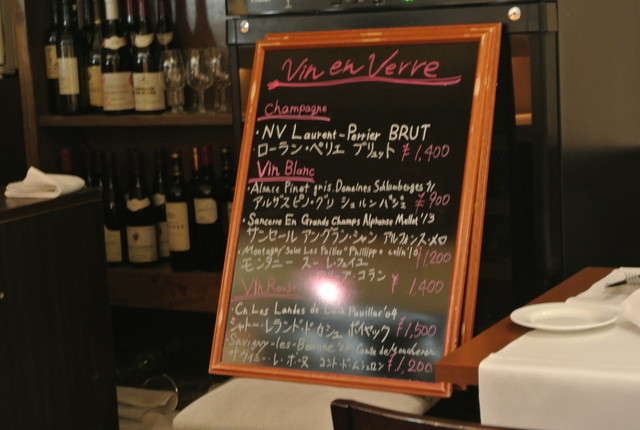 Vin en Verre
Champagne
・NV Laurent-Perrier BRUT
ローラン・ペリエ ブリュット ¥1,400
Vin Blanc
・Alsace Pinot gris. Domaines Schlumberger
アルザスピノ・グリ シュルンバジェ ¥900
・Sancerre En Grands Champs Alphonse Mellot '13
サンセール アングラン・シャン アルフォンス・メロ
¥1200
・Montagny Sous Les Feilles "Phillipp colin'10
モンタニー スー・レ・フェイユ
コラン ¥1,400
Vin Rouge
・Ch. Les Landes de Pauillac'04
シャトー・レランド・ド・カシュ ポイヤック ¥1,500
Savigny-les-Beaune
サヴィニー・レ・ボーヌ ¥1,200